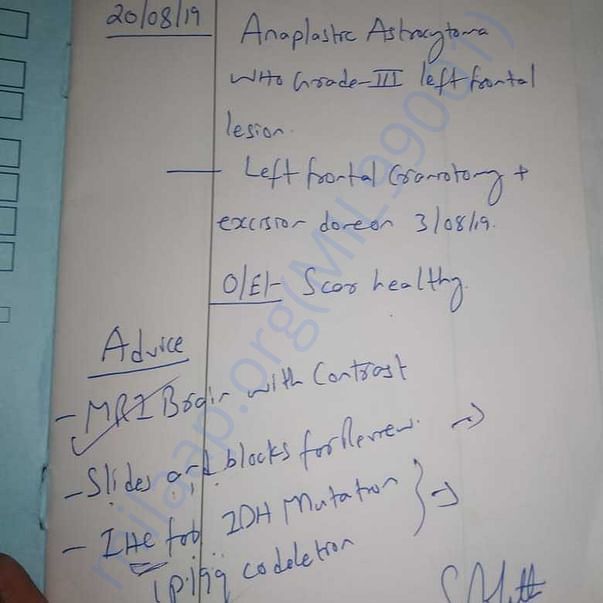 20/08/19
Anaplastic Astrocytoma
WHO Grade-III left frontal
lesion.
— Left frontal Craniotomy +
excision done on 3/08/19.
O/E/- Scar healthy.
Advice
- MRI Brain with Contrast
- Slides and blocks for Review. →
- IHC for IDH Mutation } →
1p/19q codeletion
milaap.org(MIL_990061)